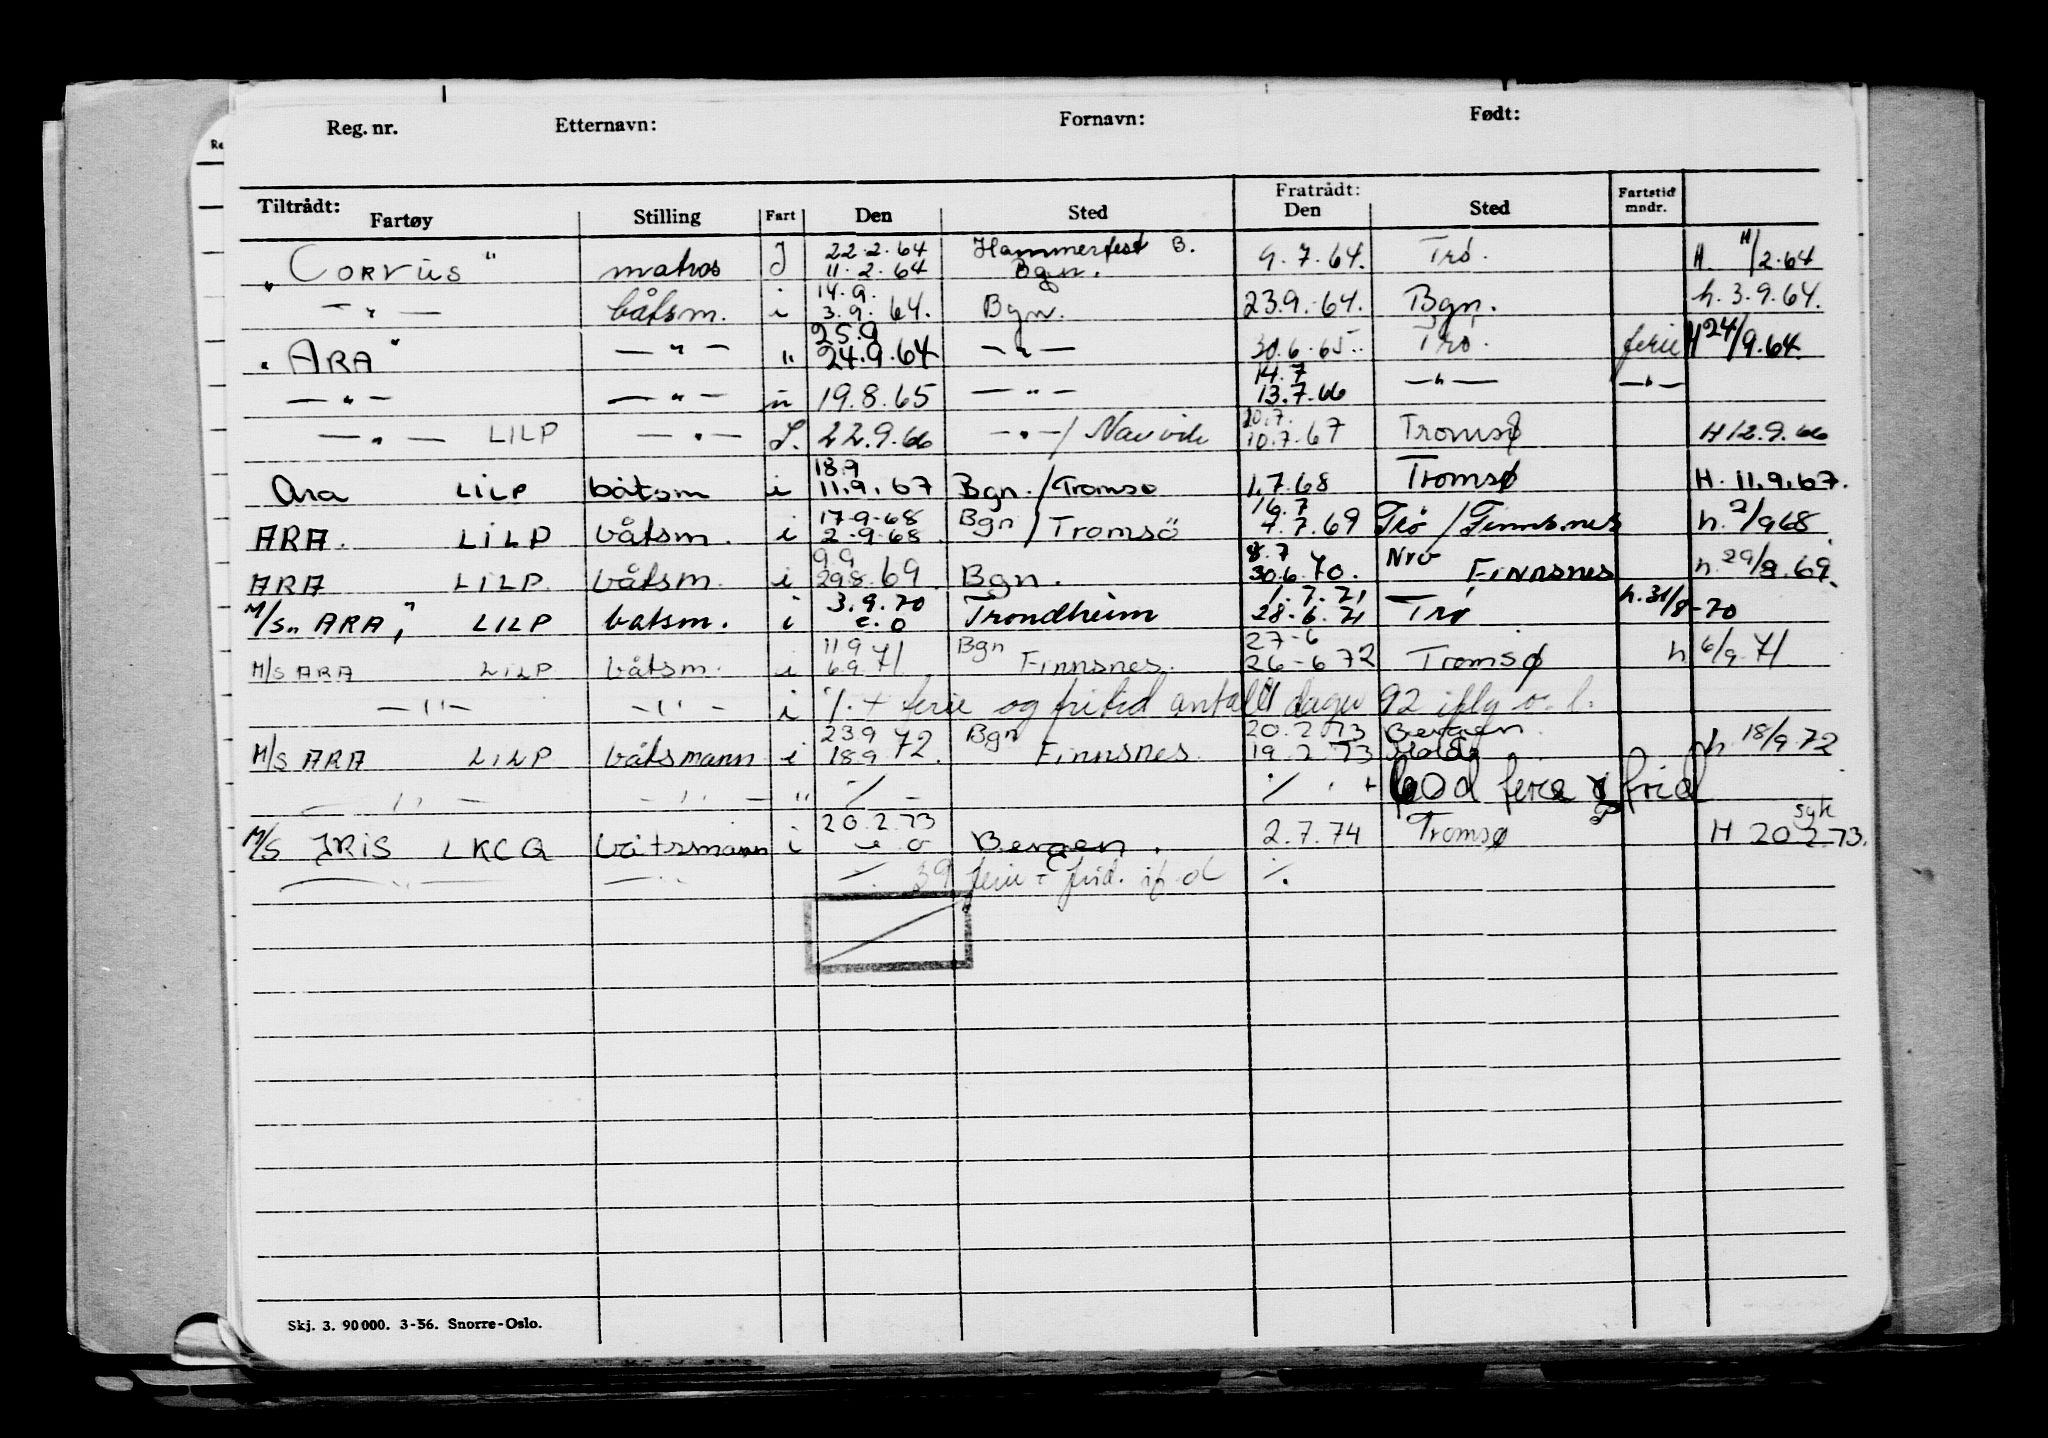 Reg. nr. Etternavn: Fornavn: Født:
Tiltrådt: Fratrådt: Fartstid mndr.
Fartøy Stilling Fart Den Sted Den Sted
22.2.64 Hammerfest B.
"CORVUS" matros I 11.2.64 Bgn. 9.7.64. Trö. H. 11/2.64
14.9.
—"— båtsm. i 3.9.64. Bgn. 23.9.64. Bgn. h. 3.9.64.
25.9
"ARA" —"— " 24.9.64 —"— 30.6.65. Trö. ferie H 24/9.64.
14.7
—"— —"— " 19.8.65 —"— 13.7.66 —"— —"—
20.7.
—"— LILP —"— I. 22.9.66 —"—/Narvik 10.7.67 Tromsø H 12.9.66
18.9
Ara LILP båtsm i 11.9.67 Bgn./Tromsø 1.7.68 Tromsø H. 11.9.67.
17.9.68 16.7
ARA. LILP båtsm. i 2.9.68. Bgn/Tromsö 7.7.69 Trö/Finnsnes h. 2/9 68
9.9 8.7
ARA LILP. båtsm. i 29.8.69. Bgn. 30.6.70. Finnsnes h. 29/8.69.
3.9.70 1.7.71
M/S "ARA" LILP båtsm. i e.o Trondheim 28.6.71 Trø h. 31/8-70
11 9 Bgn 27-6
M/S ARA LILP båtsm. i 6.9.71 Finnsnes. 26-6 72 Tromsø h 6/9.71
—"— —"— i %. + ferie og fritid antall dager 92 iflg o. l.
23 9 Bgn 20.2.73 Bergen.
M/S ARA LILP båtsmann i 18 9 72. Finnsnes 19.2.73 h 18/9.72
—"— —"— " % — % + 60 d ferie frid
20.2.73 syk
M/S IRIS LKCQ båtsmann i e o Bergen. 2.7.74 Tromsø H 20 2 73.
—"— —"— %. 39 ferie frid. if. d %.
Skj. 3. 90000. 3-56. Snorre-Oslo.